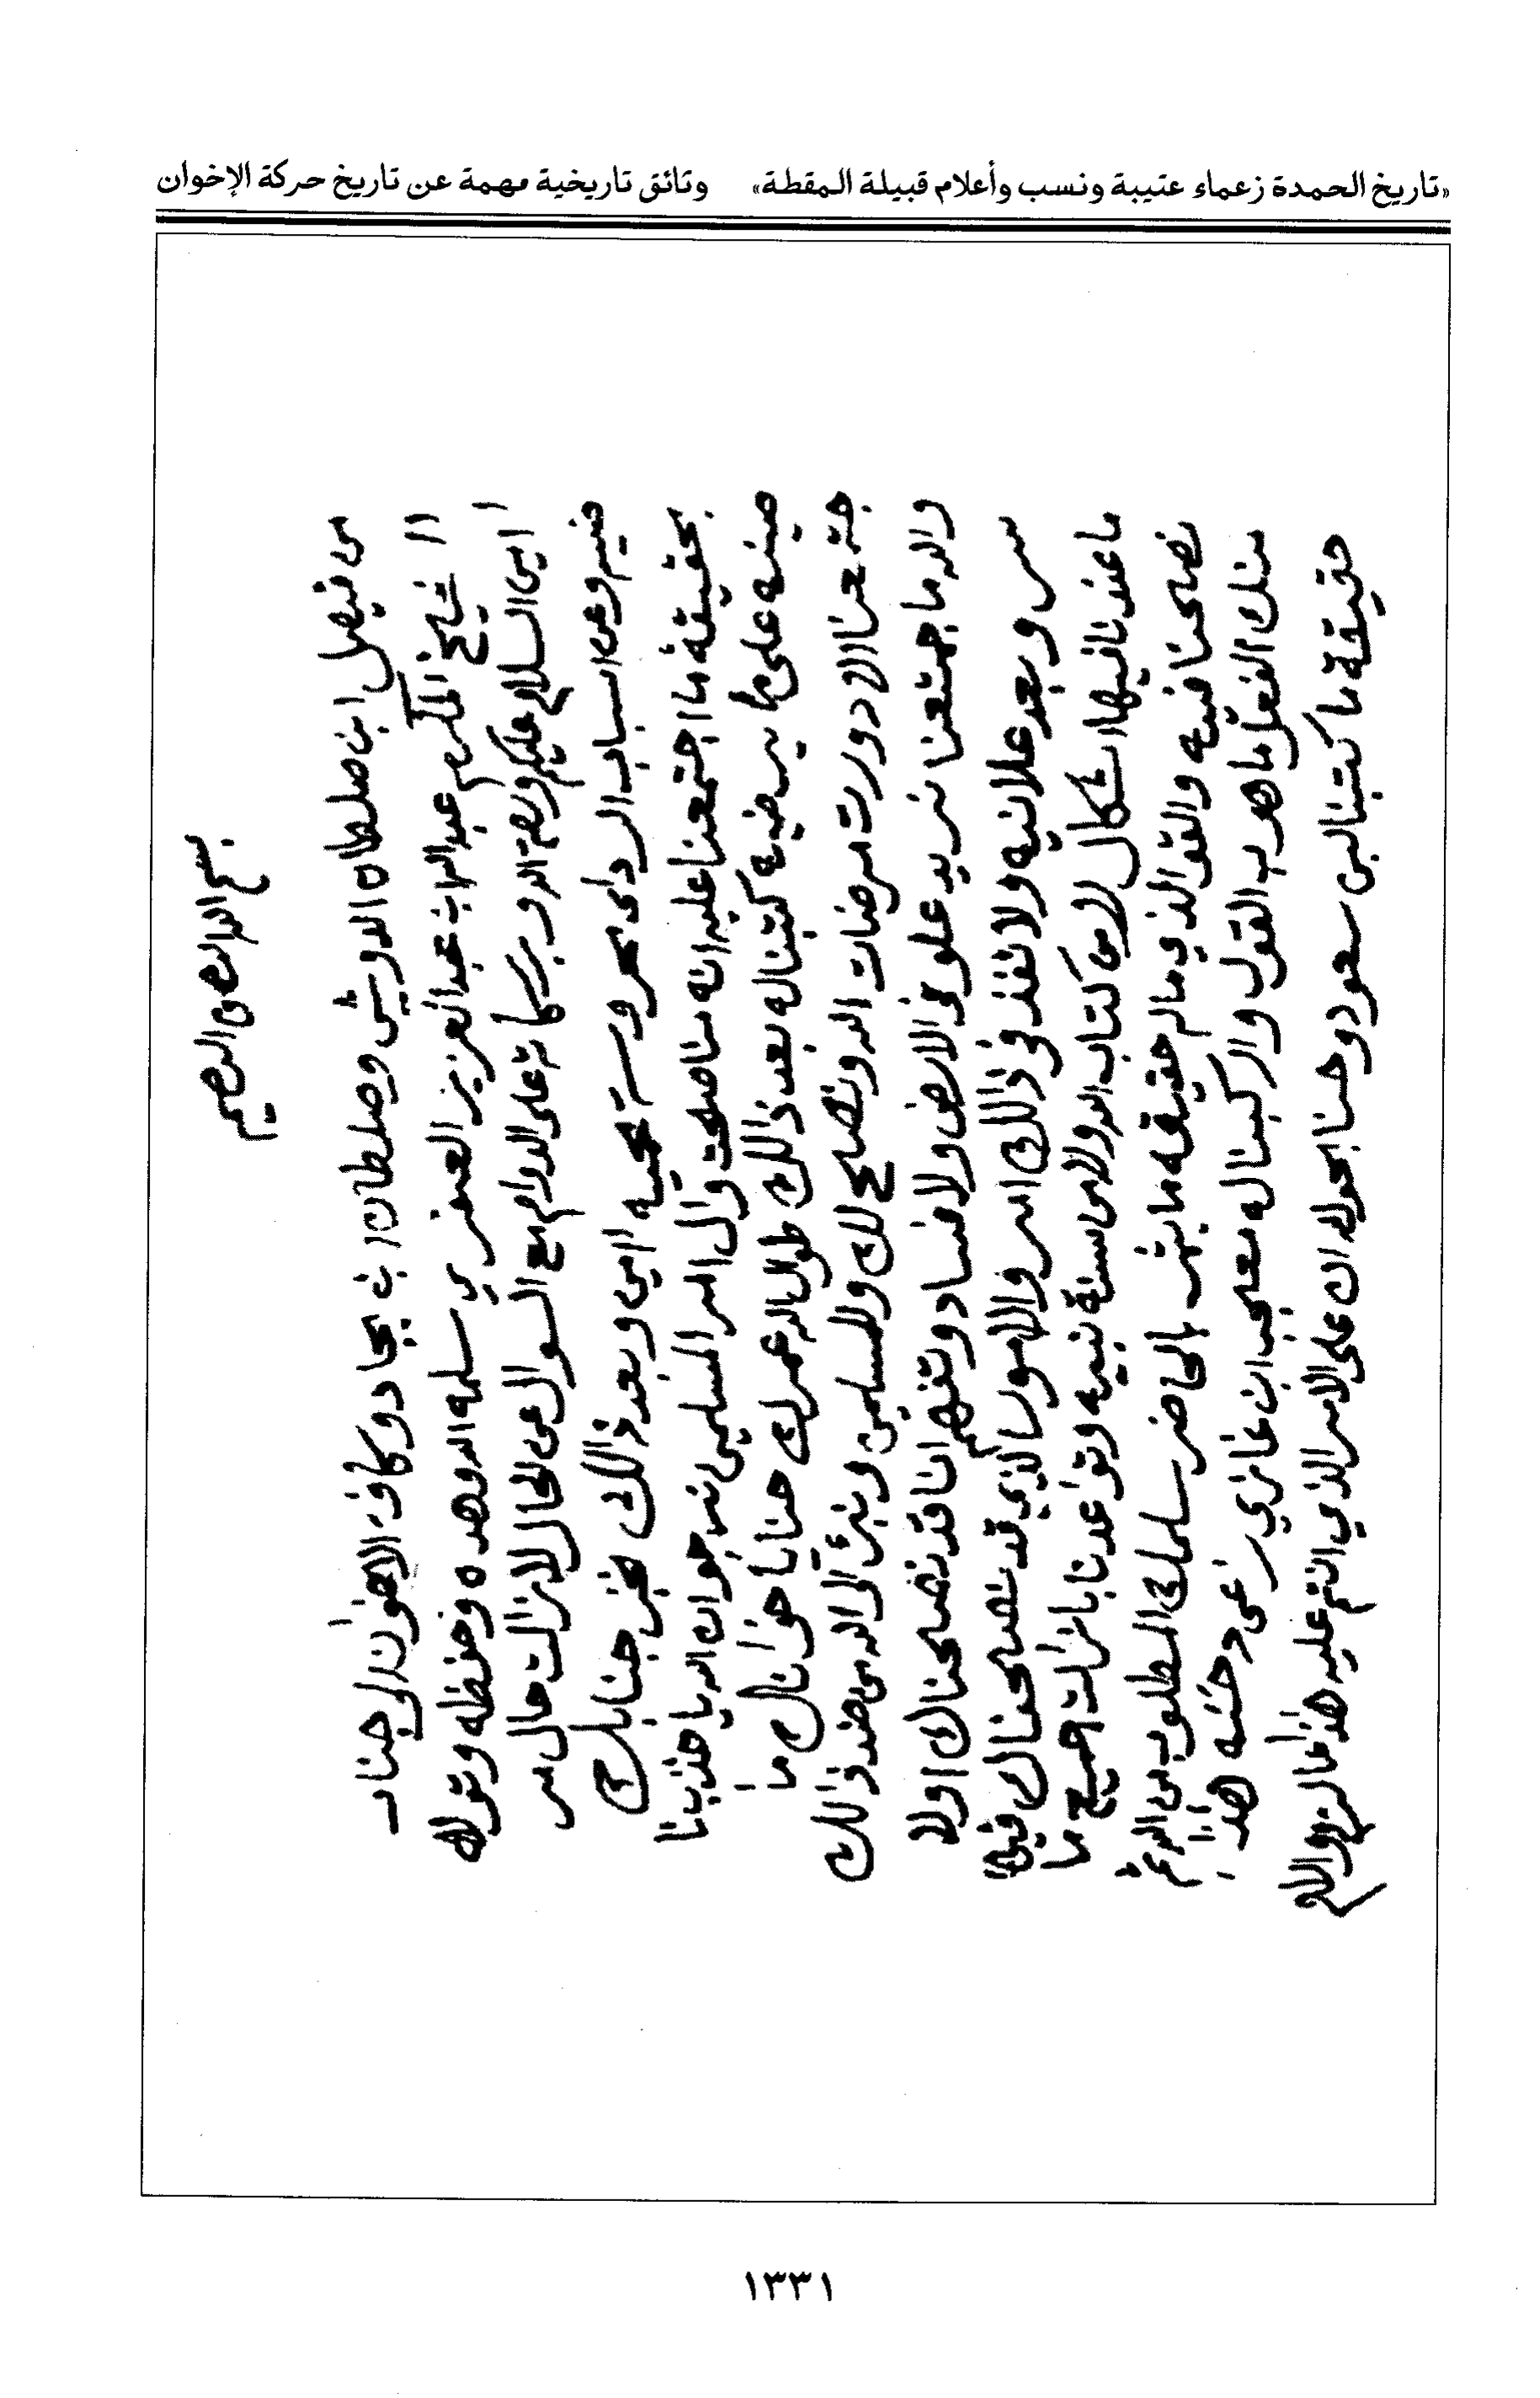 «تاريخ الحمدة زعماء عتيبة ونسب وأعلام قبيلة المقطة» وثائق تاريخية مهمة عن تاريخ حركة الإخوان
بسم الله الرحمن الرحيم
من فيصل ابن صلطان الدويش وصلطان ابن بجاد وكافة الاخوان الى جناب
الشيخ المكرم عبدالله ابن عبدالعزيز العنقري سلمه الله وهداه وحفظه وتولاه
امين السلام عليكم ورحمة الله وبركاته على الدوام مع السوال عن الحال لازالت حال من
فيم وعن اسباب الرداى محروسة محميه امين وبعد ذالك نخبر جنابك
بحقيقة ما اجتمعنا عليه انه مناصحت وال امر المسلمين نرجوا ان الله ياخذ بنا
صيته على ما يرضيه كتبنا له بعد ذالك طول الله عمرك حنا ياخوانك ما
جتمعنا الا دورت مرضات الله ونصح لك وللمسلمين ونبرٔ الى الله من ضد ذالك
والله ما جمتعنا نريد علو في الارض ولا فساد وتفهم انا قد نصحناك اولا
سر وبعد علانيه ولا نفذ في ذالك امر والامور الذي قد نصحناك فيها
ما عندنا فيها اشكال لا من كتاب الله ولا من سنة نبيه وتوعدنا بازالت جميع ما
نصحنا فيه والقو الذي ما له حقيقه ما يثمر بالحاضر سلمك المطلوب من الله ثم
منك الفعل ما هوب القول والركبنا له معجب ابن غازي رغى وحثه هذا
حقيقة ما كتبنا لبن سعود وحنا بحول الله ان على الامر الذي انتم عليه هذا ما لزم والسلام
١٣٣١